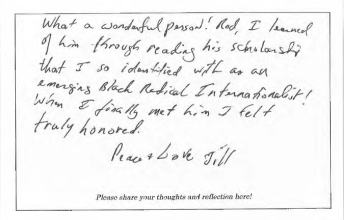 What a wonderful person! Rod, I learned
of him through reading his scholarship
that I so identified with as an
emerging Black Radical Internationalist!
When I finally met him I felt
truly honored.
Peace & Love Jill
Please share your thoughts and reflection here!